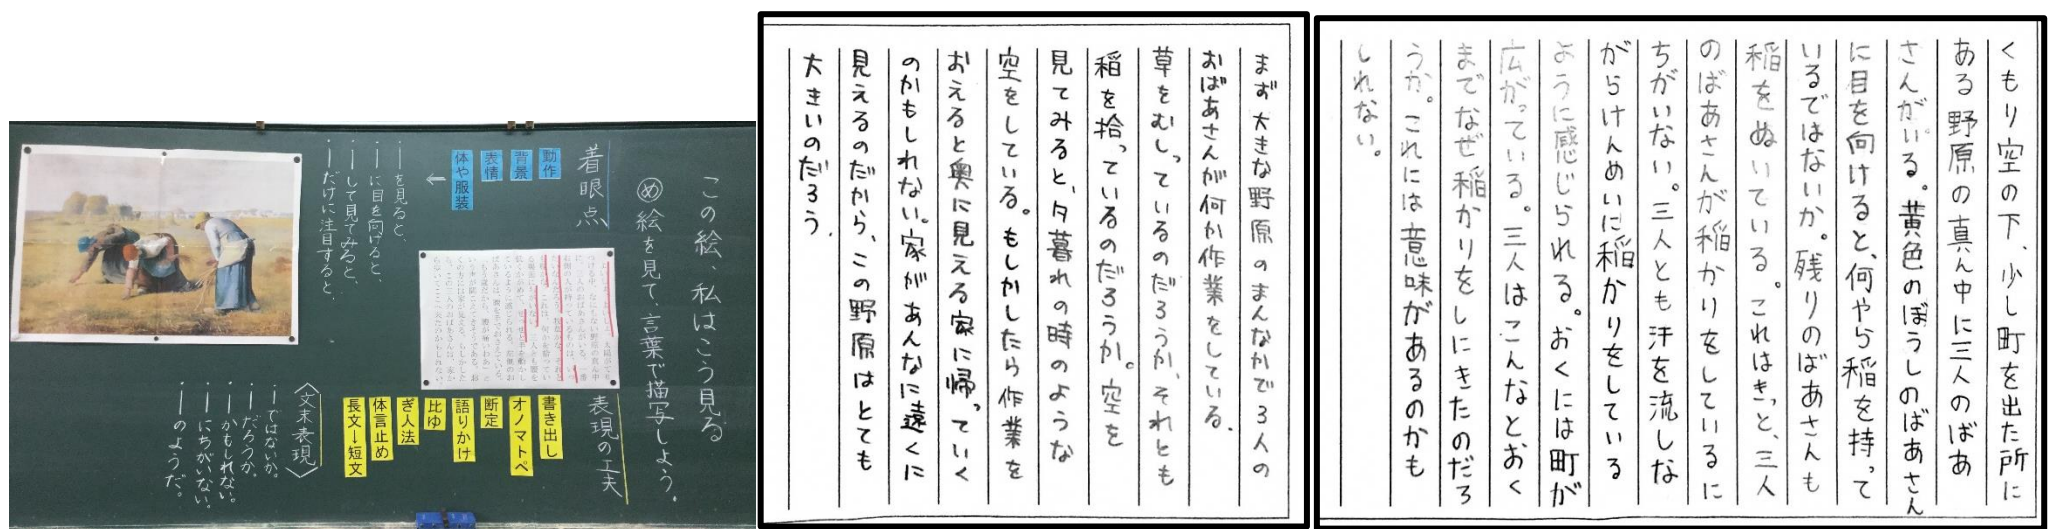 この絵、私はこう見る
め 絵を見て、言葉で描写しよう。
着眼点
動作
背景
表情
体や服装
←
・―を見ると、
・―に目を向けると、
・―して見てみると、
・―だけに注目すると、
表現の工夫
書き出し
オノマトペ
断定
語りかけ
比ゆ
ぎ人法
体言止め
長文→短文
〈文末表現〉
・―ではないか。
・―だろうか。
・―かもしれない。
・―にちがいない。
・―のようだ。
まず大きな野原のまんなかで3人の
おばあさんが何か作業をしている。
草をむしっているのだろうか、それとも
稲を拾っているのだろうか。空を
見てみると、夕暮れの時のような
空をしている。もしかしたら作業を
おえると奥に見える家に帰っていく
のかもしれない。家があんなに遠くに
見えるのだから、この野原はとても
大きいのだろう。
くもり空の下、少し町を出た所に
ある野原の真ん中に三人のばあ
さんがいる。黄色のぼうしのばあさん
に目を向けると、何やら稲を持って
いるではないか。残りのばあさんも
稲をぬいている。これはきっと、三人
のばあさんが稲かりをしているに
ちがいない。三人とも汗を流しな
がらけんめいに稲かりをしている
ように感じられる。おくには町が
広がっている。三人はこんなとおく
までなぜ稲かりをしにきたのだろ
うか。これには意味があるのかも
しれない。